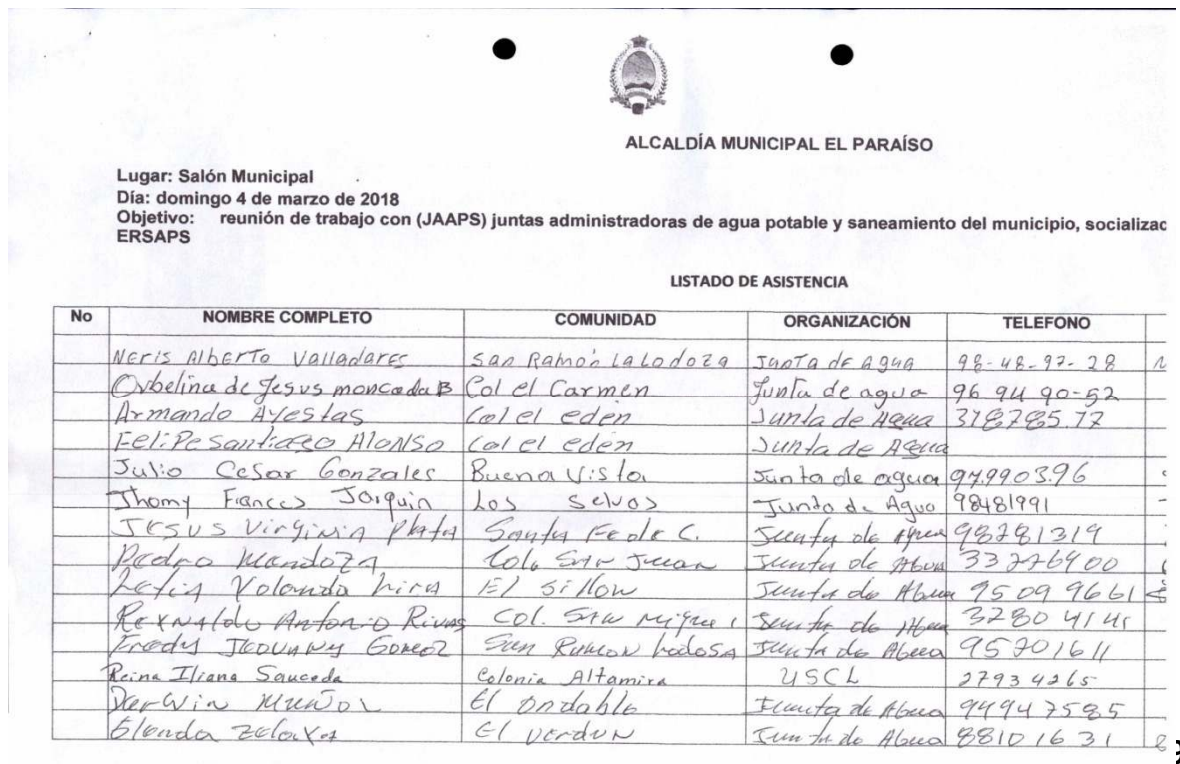 ALCALDÍA MUNICIPAL EL PARAÍSO
Lugar: Salón Municipal
Día: domingo 4 de marzo de 2018
Objetivo: reunión de trabajo con (JAAPS) juntas administradoras de agua potable y saneamiento del municipio, socializac
ERSAPS
LISTADO DE ASISTENCIA
No NOMBRE COMPLETO COMUNIDAD ORGANIZACIÓN TELEFONO
Neris Alberto Valladares San Ramón la Lodoza Junta de Agua 98-48-97-28
Orbelina de Jesus moncada B Col el Carmen Junta de agua 96 94 90-52
Armando Ayestas Col el eden Junta de Agua 318785.77
Felipe Santiago Alonso Col el eden Junta de Agua
Julio Cesar Gonzales Buena Vista Junta de agua 97990396
Jhomy Frances Joaquin Los Selvas Junta de Agua 98481991
Jesus Virginia Plata Santa Fe de C. Junta de Agua 98281319
Pedro Mendoza Colo San Juan Junta de Agua 33276900
Yolanda El Sillon Junta de Agua 9509 9661
Reynaldo Antonio Rivas Col. San Miguel Junta de Agua 3280 4141
Fredy Gomez San Ramon Lodosa Junta de Agua 95201611
Reina Iliana Sauceda Colonia Altamira USCL 27934265
Darwin Muñoz El ondable Junta de Agua 94947585
Glenda Zelaya El verdun Junta de Agua 88101631